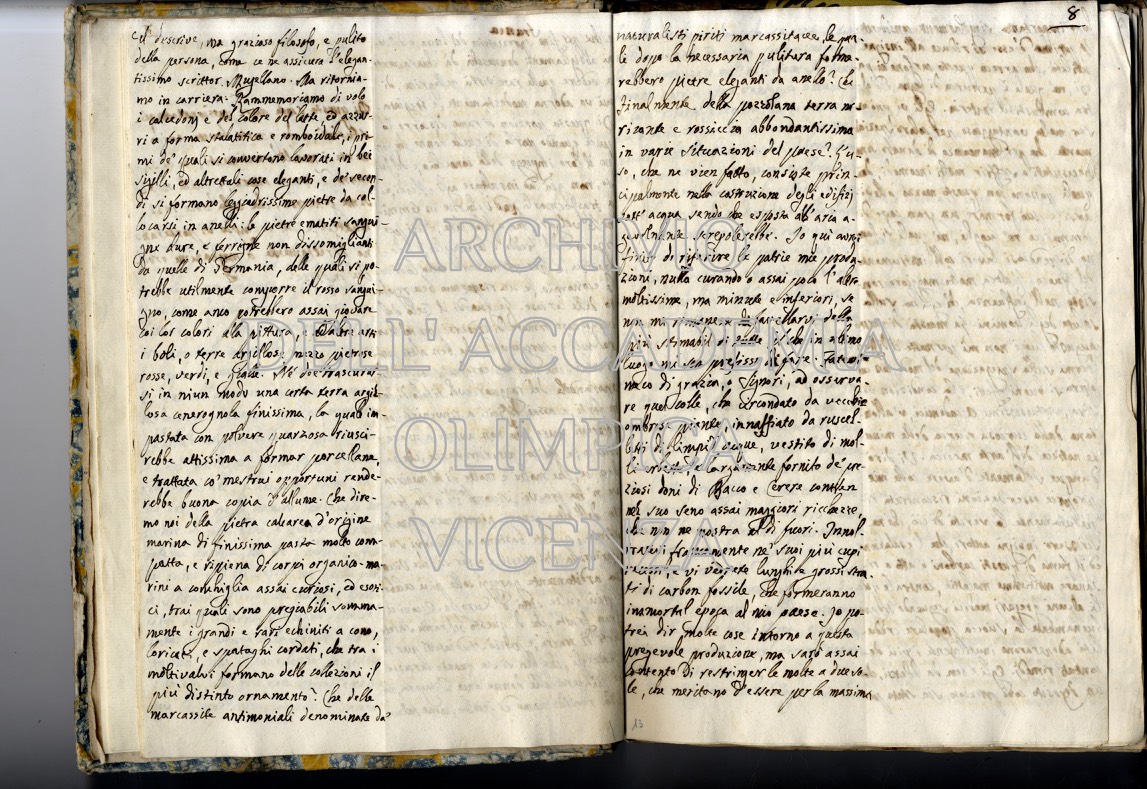 ce'l descrive, ma grazioso filosofo, e pulito
della persona, come ce ne assicura l'elegan-
tissimo scrittor Mugellano. Ma ritornia-
mo in carriera. Rammemoriamo di volo
i calcedonj e del colore del latte ed azzur-
ri a forma stalatitica e romboidale, i pri-
mi de' quali si convertono lavorati in bei
sigilli, ed altrettali cose eleganti, e de' secon-
di si formano leggiadrissime pietre da col-
locarsi in anella: le pietre ematiti sangui-
gne dure, e ferrigne non dissomiglianti
da quelle di Germania, delle quali si po-
trebbe utilmente comporre il rosso sangui-
gno, come anco potrebbero assai giovare
coi lor colori alla pittura, e ad altre arti
i boli, o terre argillose, mezzo pietrose
rosse, verdi, e gialle. Nè dee trascurar-
si in niun modo una certa terra argil-
losa cenerognola finissima, la quale im-
pastata con polvere quarzosa riusci-
rebbe attissima a formar porcellane,
e trattata co' mestrui opportuni rende-
rebbe buona copia d'allume. Che dire-
mo noi della pietra calcarea d'origine
marina di finissima pasta molto com-
patta, e ripiena di corpi organico-ma-
rini a conchiglia assai curiosi, ed esoti-
ci, trai quali sono pregiabili somma-
mente i grandi e rari echiniti a cono,
loricati, e spataghi cordati, che tra i
moltivalvi formano delle collezioni il
più distinto ornamento? Che delle
marcassite antimoniali denominate da'
8
naturalisti piriti marcassitacee, le qua-
li dopo la necessaria pulitura forme-
rebbero pietre eleganti da anello? Che
finalmente della pozzolana terra ni-
rizante e rossiccia abbondantissima
in varie situazioni del paese? L'u-
so, che ne vien fatto, consiste prin-
cipalmente nella costruzione degli edifizj
sott'acqua, sendo che esposta all'aria a-
gevolmente screpolerebbe. Io qui avrei
finito di riferire le patrie mie produ-
zioni, nulla curando o assai poco l'altre
moltissime, ma minute e inferiori, se
non mi rimanesse di favellarvi della
più stimabil di tutte il che in ultimo
luogo mi son prefisso di fare. Fatevi
meco di grazia, o Signori, ad osserva-
re quel colle, che circondato da vecchie
ombrose piante, innaffiato da ruscel-
letti di limpid' acque, vestito di mol-
li erbette, e largamente fornito de' pre-
ziosi doni di Bacco e Cerere contien
nel suo seno assai maggiori ricchezze
che non ne mostra al di fuori. Innol-
tratevi francamente ne' suoi più cupi
recessi, e vi vedrete lunghi e grossi stra-
ti di carbon fossile, che formeranno
inamortal epoca al mio paese. Io po-
trei dir molte cose intorno a questa
pregevole produzione, ma sarò assai
contento di restringer le molte a due so-
le, che meritano d'essere per la massima
13
ARCHIVIO
DELL'ACCADEMIA
OLIMPICA
VICENZA